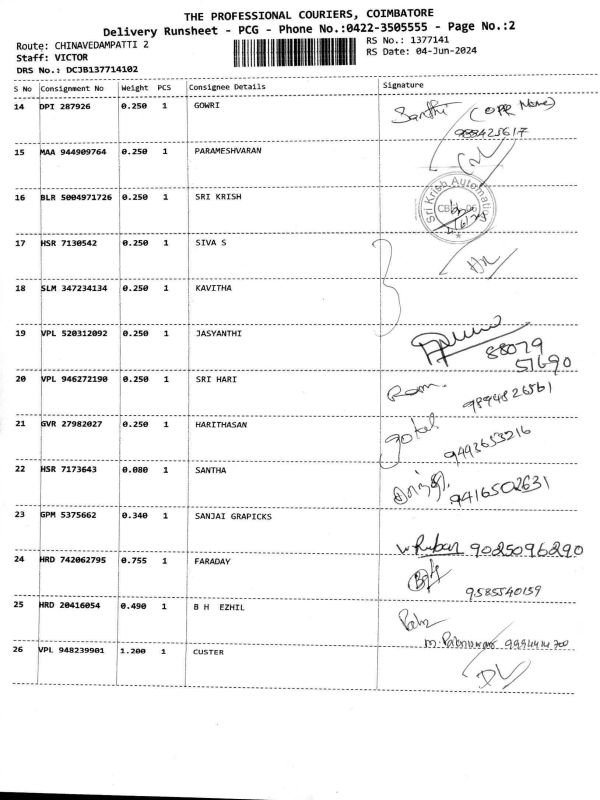 THE PROFESSIONAL COURIERS, COIMBATORE
Delivery Runsheet - PCG - Phone No.:0422-3505555 - Page No.:2
Route: CHINAVEDAMPATTI 2
RS No.: 1377141
Staff: VICTOR
RS Date: 04-Jun-2024
DRS No.: DCJB137714102
S No Consignment No Weight PCS Consignee Details Signature
14 DPI 287926 0.250 1 GOWRI
Santhi
15 MAA 944909764 0.250 1 PARAMESHVARAN
16 BLR 5004971726 0.250 1 SRI KRISH
Sri Krish Automation
17 HSR 7130542 0.250 1 SIVA S
18 SLM 347234134 0.250 1 KAVITHA
19 VPL 520312092 0.250 1 JASYANTHI
88079
57690
20 VPL 946272190 0.250 1 SRI HARI
9894826561
21 GVR 27982027 0.250 1 HARITHASAN
9493653216
22 HSR 7173643 0.080 1 SANTHA
9416502631
23 GPM 5375662 0.340 1 SANJAI GRAPICKS
9025096290
24 HRD 742062795 0.755 1 FARADAY
9585540159
25 HRD 20416054 0.490 1 B H EZHIL
26 VPL 948239901 1.200 1 CUSTER
DL